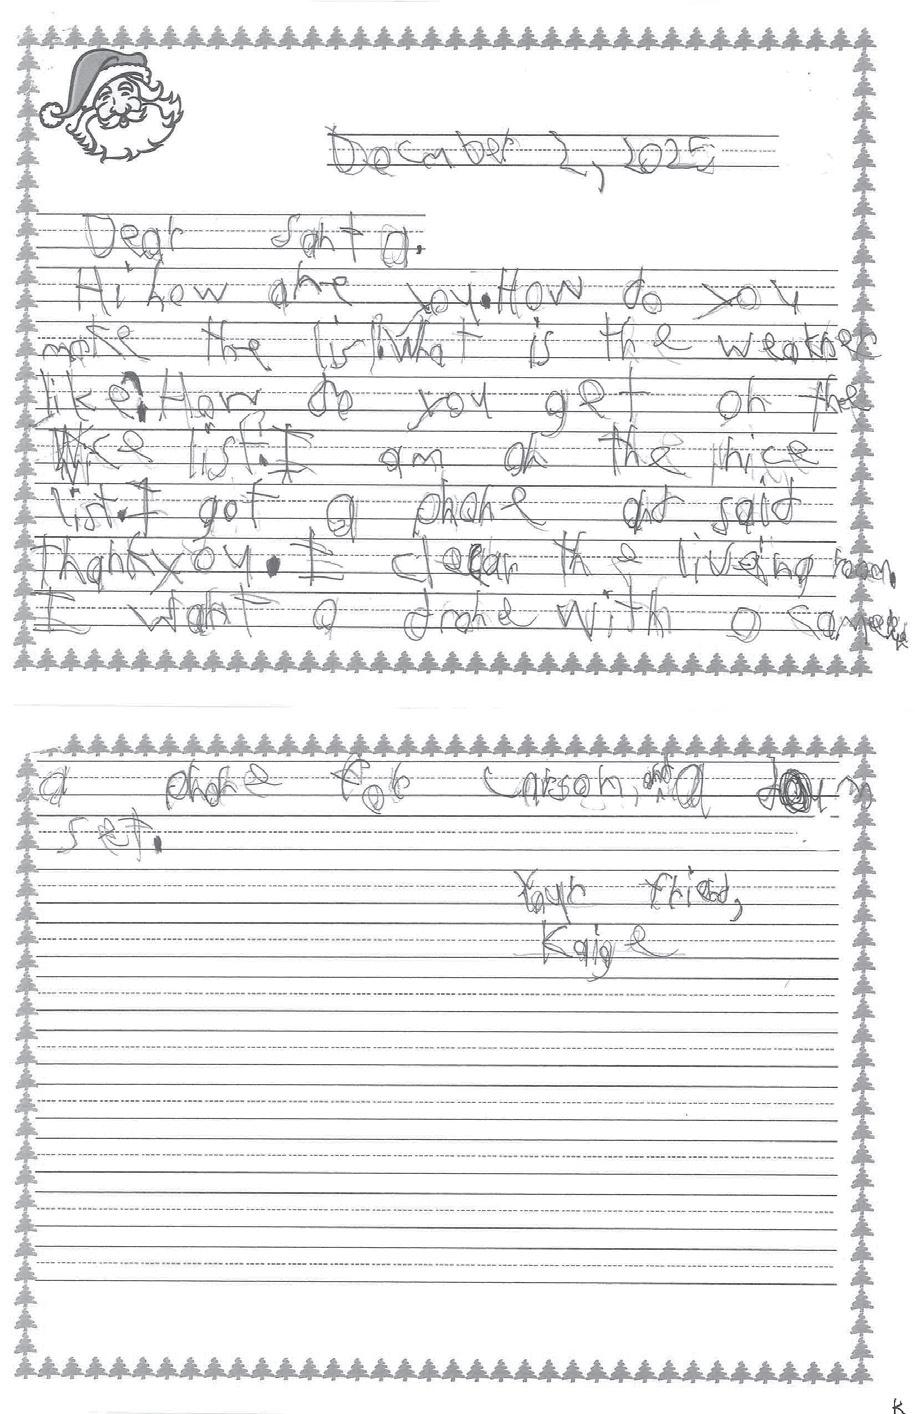 Decmber 2, 2025
Dear Santa,
Hi how are you. How do you
make the list. What is the
like? How do you get on the
Nice list. I am on the nice
list. I got a phone and said
thank you. I clean the liveing room.
I want a drone with a camera
a phone for Carson, and a
set.
Your friend,
Kaige
K